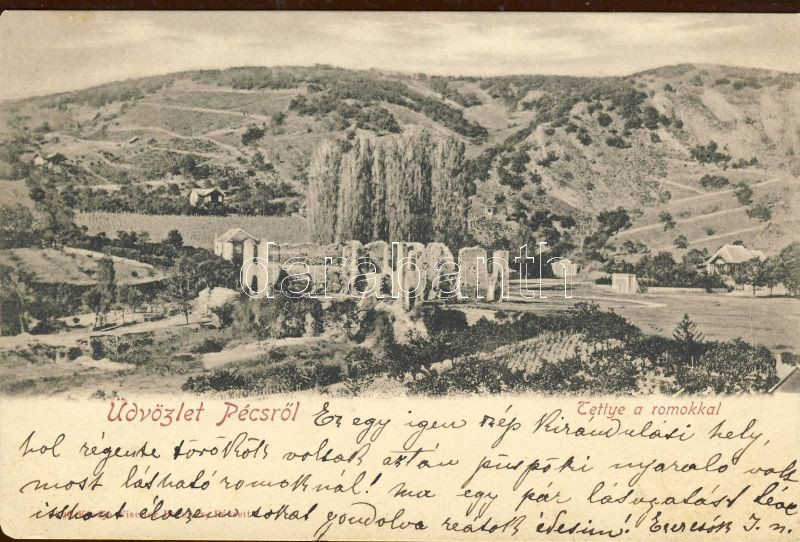 darabanth
Üdvözlet Pécsről
Tettye a romokkal
Ez egy igen szép kirándulási hely,
hol régente törökök voltak aztán püspöki nyaraló volt
most látható romoknál! ma egy pár látogatást téve
ismét élvezve sokat gondolva reátok édesim! Ezercsók I. n.